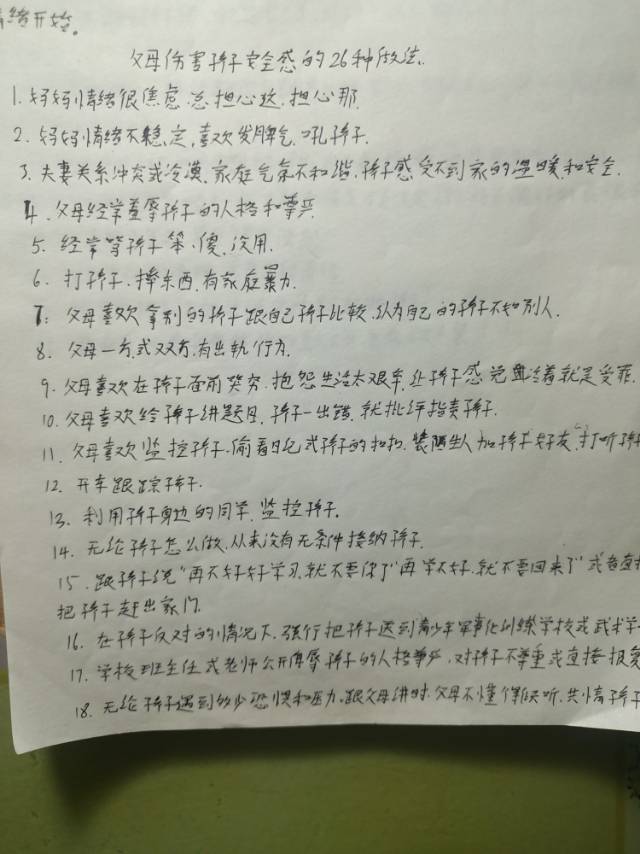 绪开始。
父母伤害孩子安全感的26种做法.
1.妈妈情绪很焦虑.总担心这,担心那.
2.妈妈情绪不稳定,喜欢发脾气.吼孩子.
3.夫妻关系冲突或冷漠.家庭气氛不和谐.孩子感受不到家的温暖和安全.
4.父母经常羞辱孩子的人格和尊严.
5.经常等孩子笨、傻、没用.
6.打孩子.摔东西.有家庭暴力.
7:父母喜欢拿别的孩子跟自己孩子比较.认为自己的孩子不如别人.
8.父母一方或双方,有出轨行为.
9.父母喜欢在孩子面前哭穷.抱怨生活太艰辛.让孩子感觉活着就是受罪.
10.父母喜欢给孩子讲题目.孩子一出错.就批评指责孩子.
11.父母喜欢监控孩子.偷看日记或孩子的扣扣.装陌生人加孩子好友.打听孩
12.开车跟踪孩子.
13.利用孩子身边的同学.监控孩子.
14.无论孩子怎么做.从来没有无条件接纳孩子.
15.跟孩子说“再不好好学习.就不要你了”再学不好.就不要回来了”或者直接
把孩子赶出家门.
16.在孩子反对的情况下.强行把孩子送到青少年军事化训练学校或武术学
17.学校班主任或老师公开侮辱孩子的人格尊严.对孩子不尊重或直接报复
18.无论孩子遇到多少恐惧和压力.跟父母讲时.父母不懂得倾听.共情孩子